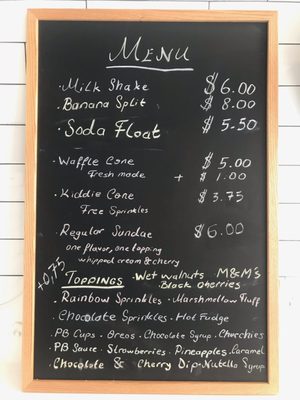 MENU
· Milk Shake $6.00
· Banana Split $8.00
· Soda Float $5-50
· Waffle Cone $5.00
Fresh made + $1.00
· Kiddie Cone $3.75
Free Sprinkles
· Regular Sundae $6.00
one flavor, one topping
whipped cream & cherry
+0,75
TOPPINGS · Wet walnuts M&M's
· Black cherries
· Rainbow Sprinkles · Marshmallow Fluff
· Chocolate Sprinkles · Hot Fudge
· PB Cups · Oreos · Chocolate Syrup
· PB Sauce · Strawberries · Pineapples · Caramel
· Chocolate & Cherry Dip · Nutella Syrup